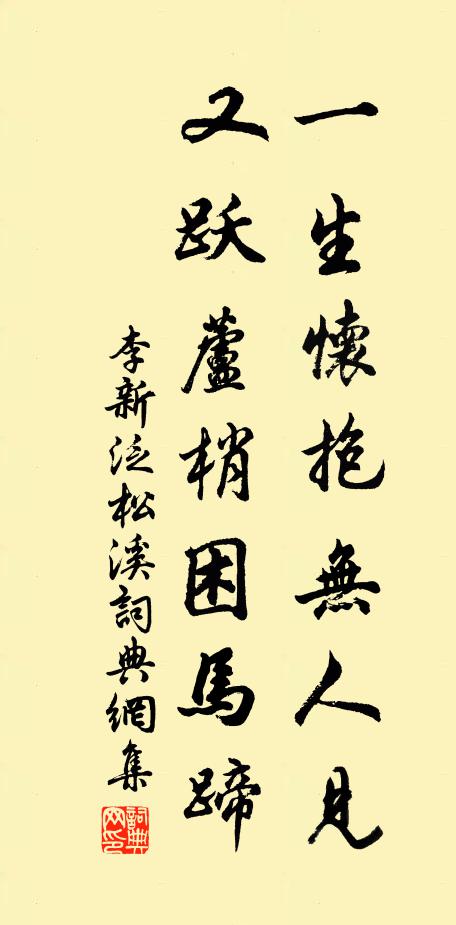 一生懷抱無人見
又跃蘆梢困馬蹄
李新泛松溪詞典網集
詞典网印